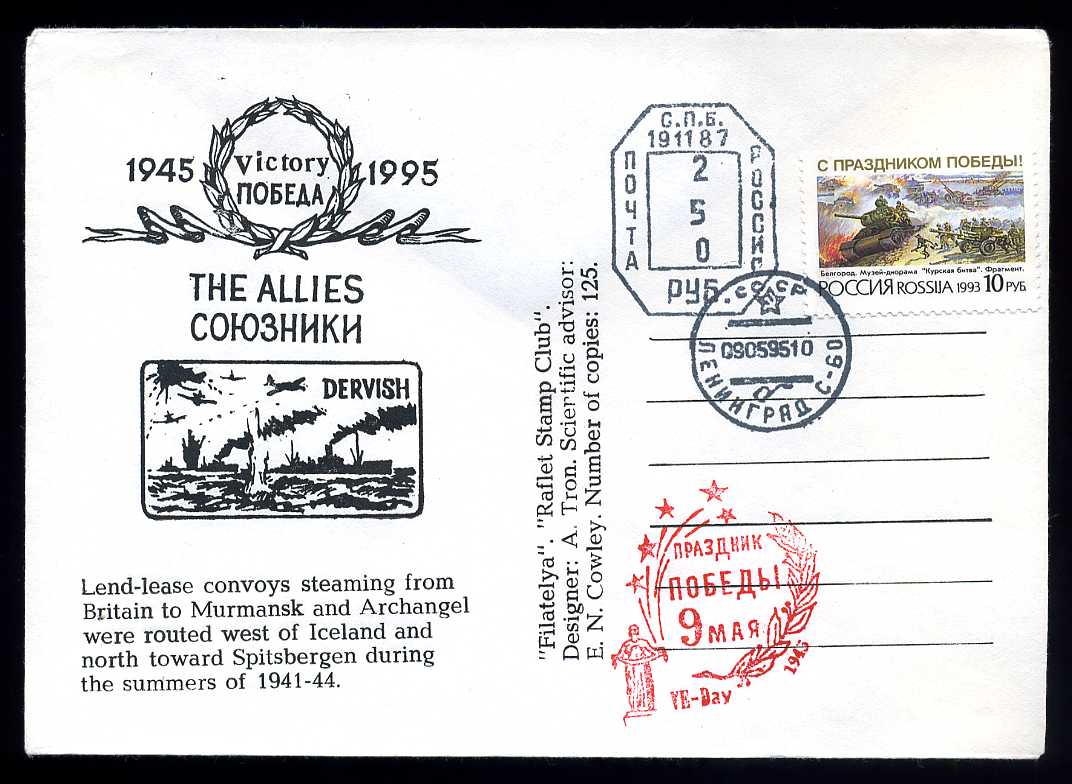 1945 Victory 1995
ПОБЕДА
THE ALLIES
СОЮЗНИКИ
DERVISH
Lend-lease convoys steaming from
Britain to Murmansk and Archangel
were routed west of Iceland and
north toward Spitsbergen during
the summers of 1941-44.
"Filatelya". "Raflet Stamp Club".
Designer: A. Tron. Scientific advisor:
E. N. Cowley. Number of copies: 125.
С.П.Б.
191187
ПОЧТА
РОССИЯ
2
5
0
РУБ.
С ПРАЗДНИКОМ ПОБЕДЫ!
Белгород. Музей-диорама "Курская битва". Фрагмент.
РОССИЯ ROSSIJA 1993 10 РУБ
СССР
09059510
ЛЕНИНГРАД С-60
ПРАЗДНИК
ПОБЕДЫ
9 МАЯ
1945
VE-Day